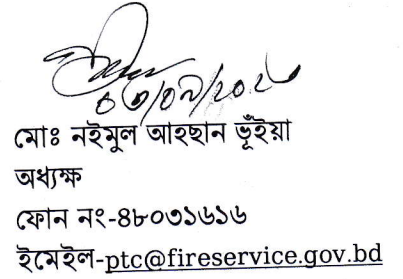 মোঃ নইমুল আহছান ভূঁইয়া
অধ্যক্ষ
ফোন নং-৪৮০৩১৬১৬
ইমেইল-ptc@fireservice.gov.bd